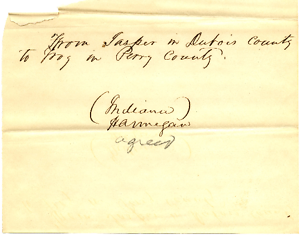 From Jasper in Dubois County
to Troy in Perry County.
(Indiana)
Hannegan
agreed